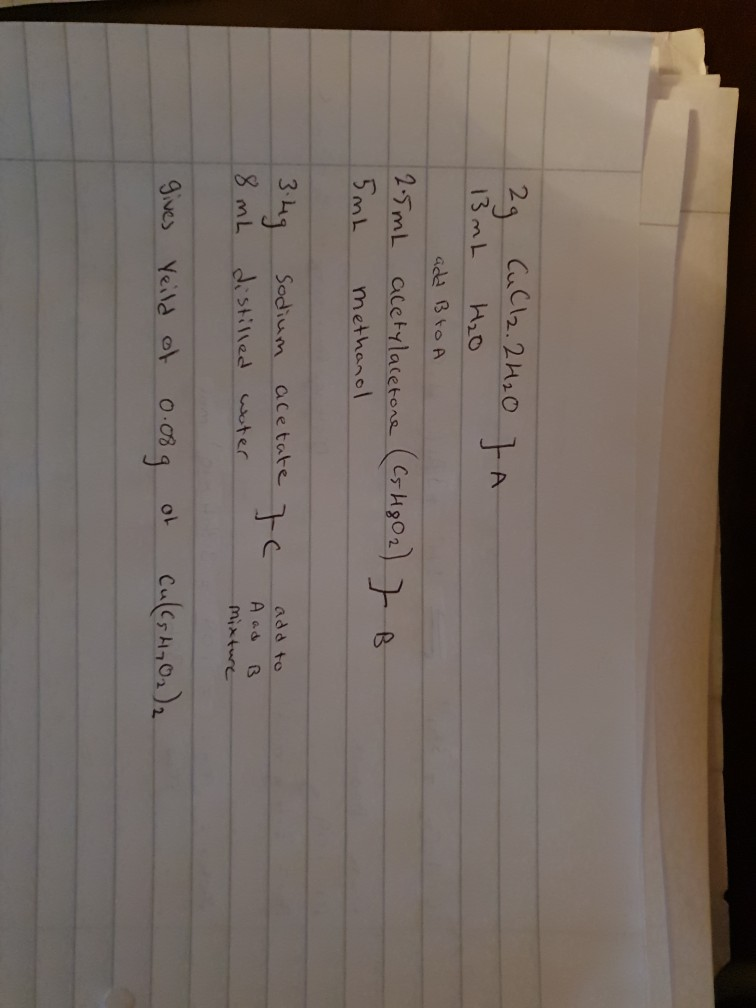 2g CuCl2.2H2O } A
13mL H2O
add B to A
2.5mL acetylacetone (C5H8O2) } B
5mL methanol
3.4g sodium acetate } C add to
8 mL distilled water A ad B
mixture
gives Yeild of 0.08g of Cu(C5H7O2)2